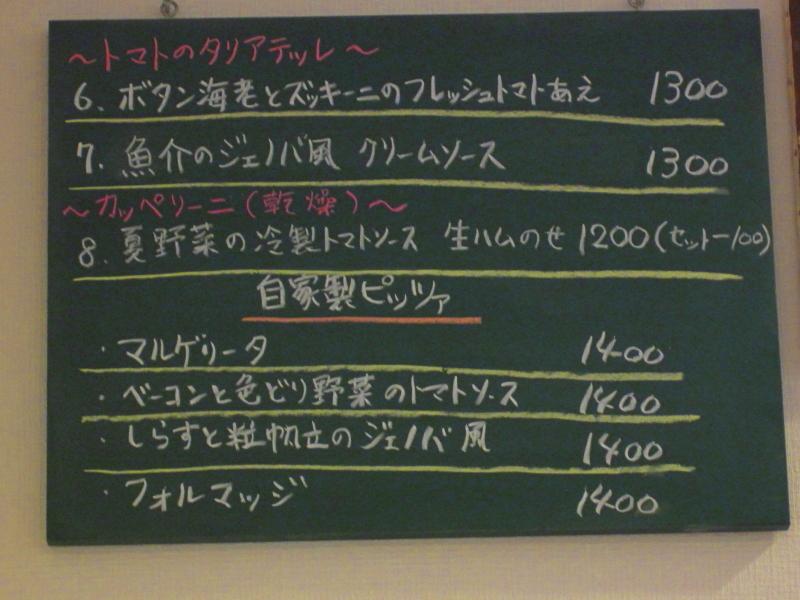 ～トマトのタリアテッレ～
6. ボタン海老とズッキーニのフレッシュトマトあえ 1300
7. 魚介のジェノバ風 クリームソース 1300
～カッペリーニ(乾燥)～
8. 夏野菜の冷製トマトソース 生ハムのせ 1200(セット-100)
自家製ピッツァ
・マルゲリータ 1400
・ベーコンと色どり野菜のトマトソース 1400
・しらすと粒帆立のジェノバ風 1400
・フォルマッジ 1400